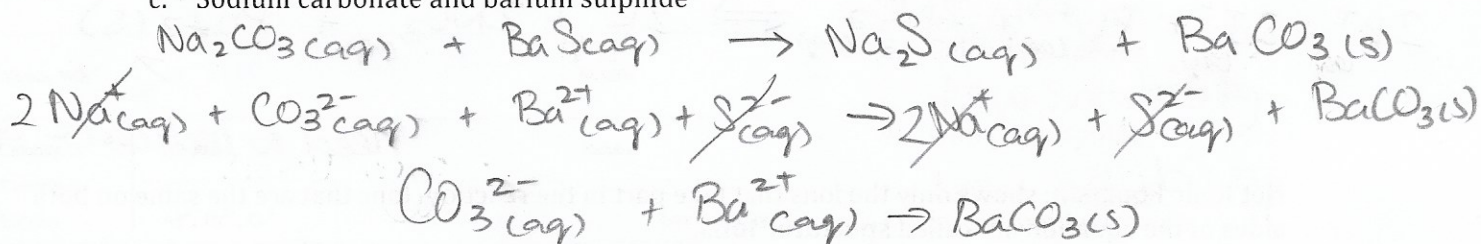 c. Sodium carbonate and barium sulphide
Na₂CO₃(aq) + BaS(aq) → Na₂S(aq) + BaCO₃(s)
2Na⁺(aq) + CO₃²⁻(aq) + Ba²⁺(aq) + S²⁻(aq) → 2Na⁺(aq) + S²⁻(aq) + BaCO₃(s)
CO₃²⁻(aq) + Ba²⁺(aq) → BaCO₃(s)